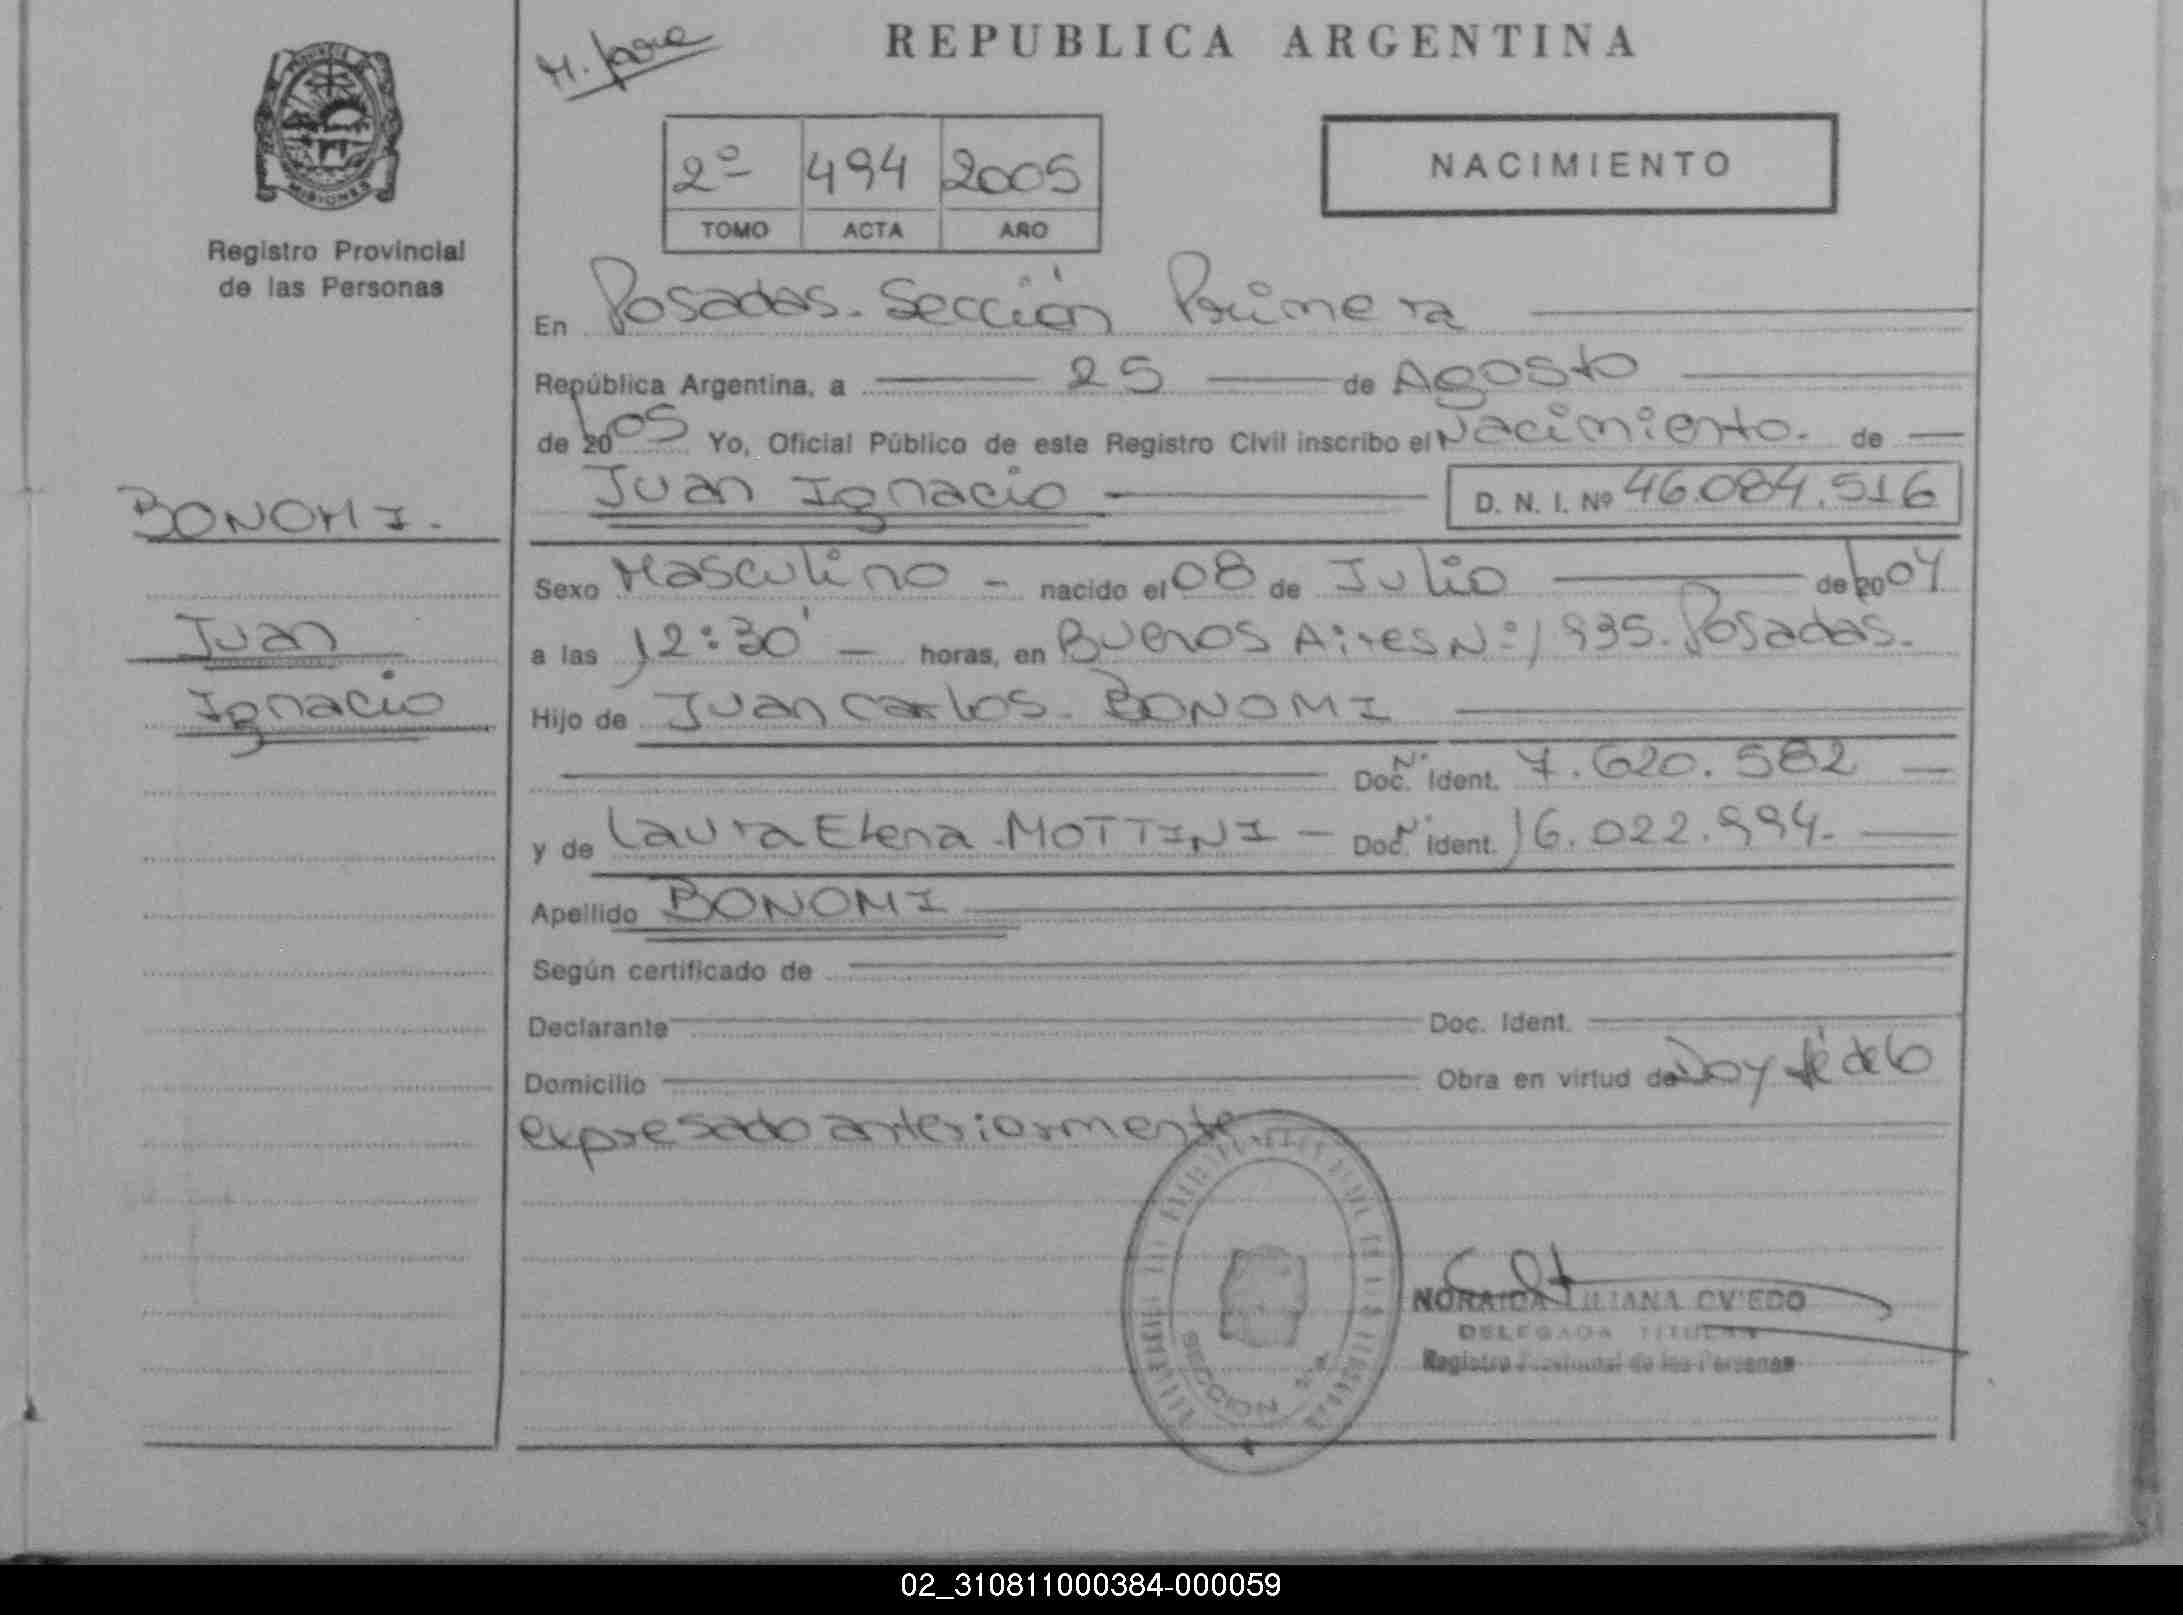 REPUBLICA ARGENTINA
PROVINCIA DE
MISIONES
Registro Provincial
de las Personas
2º 494 2005
TOMO ACTA AÑO
NACIMIENTO
En Posadas. Sección Primera
República Argentina, a 25 de Agosto
de 2005 Yo, Oficial Público de este Registro Civil inscribo el Nacimiento. de
Juan Ignacio D. N. I. Nº 46.084.516
BONOMI.
Juan
Ignacio
Sexo Masculino - nacido el 08 de Julio de 2004
a las 12:30' horas, en Buenos Aires Nº: 1935. Posadas.
Hijo de Juan Carlos. BONOMI
Doc. Nº Ident. 7.620.582
y de Laura Elena. MOTTINI - Doc. Nº Ident. 16.022.994.
Apellido BONOMI
Según certificado de
Declarante Doc. Ident.
Domicilio Obra en virtud de Doy fé de lo
expresado anteriormente
SECCION
LILIANA OVIEDO
DELEGADA TITULAR
Registro Provincial de las Personas
02_310811000384-000059